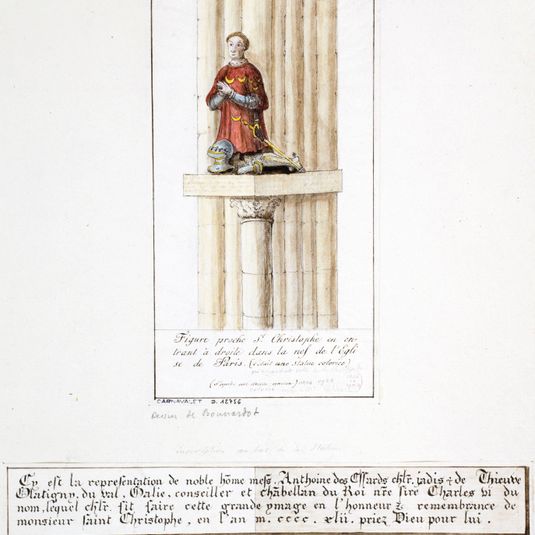 Figure proche St. Christophe en en-
trant à droite dans la nef de l'Egli
se de Paris. (c'était une statue coloriée)
(d'après un dessin ancien)
CARNAVALET D. 12756
Dessin de Bonnardot
inscription au bas de la statue
Cy est la representation de noble hõme mess. Anthoine des Essards chlr. jadis & de Thieuve
Glatigny, du val, Galie, conseiller et chãbellan du Roi nr̃e sire Charles vi du
nom, lequel chlr. fit faire cette grande ymage en l'honneur & remembrance de
monsieur saint Christophe, en l'an m. cccc. xlii. priez Dieu pour lui.